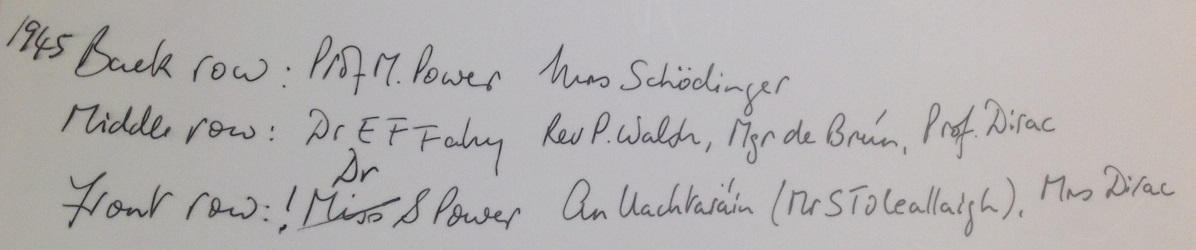 1945 Back row: Prof M. Power Mrs Schödinger
Middle row: Dr E F Fahy Rev P. Walsh, Mgr de Brún, Prof. Dirac
Dr
Front row: ! Miss S Power An Uachtaráin (Mr S T O'Ceallaigh), Mrs Dirac